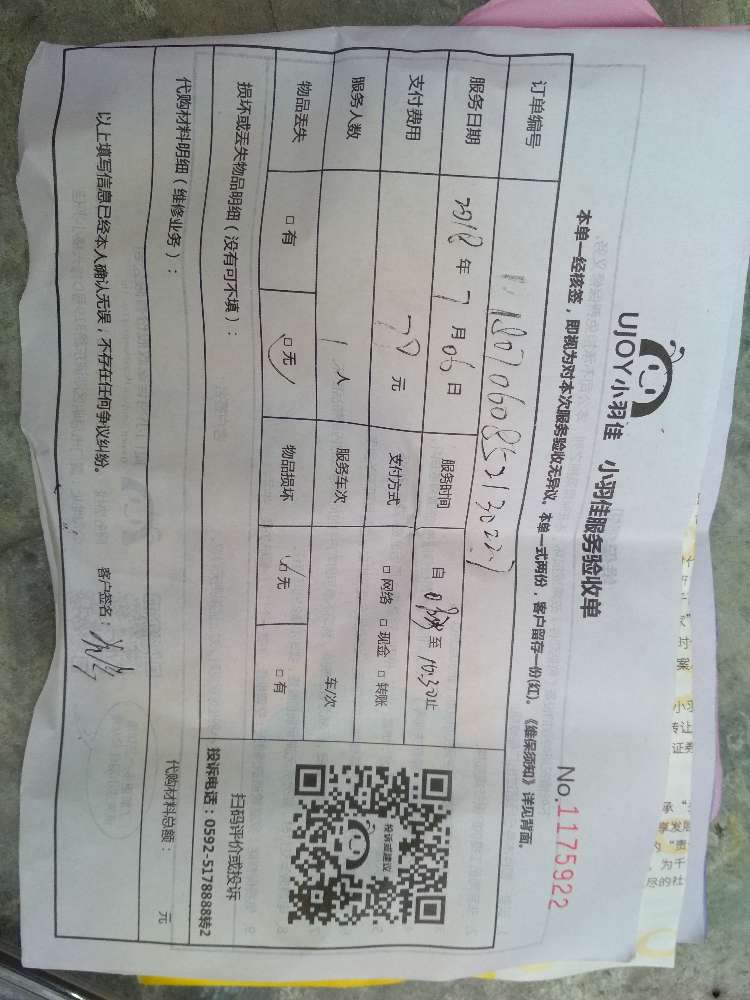 UJOY小羽佳 小羽佳服务验收单
No.1175922
本单一经核签，即视为对本次服务验收无异议。本单一式两份，客户留存一份(红)。《维保须知》详见背面。
订单编号
服务日期 2018 年 7 月 06 日 服务时间 自 至 10:30 止
支付费用 79 元 支付方式 □ 网络 □ 现金 □ 转账
服务人数 1 人 服务车次 车/次
物品丢失 □ 有 □ 无 物品损坏 □ 无 □ 有
投诉或建议
扫码评价或投诉
投诉电话：0592-5178888转2
损坏或丢失物品明细（没有可不填）：
代购材料明细（维修业务）： 代购材料总额： 元
以上填写信息已经本人确认无误；不存在任何争议纠纷。 客户签名：